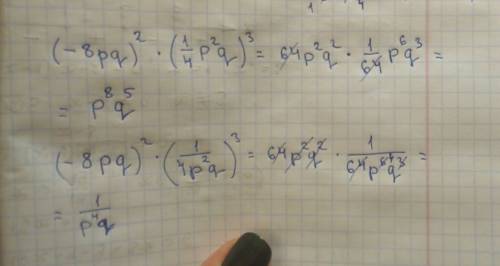 (-8pq)² · (1/4 p²q)³ = 64p²q² · 1/64 p⁶q³ =
= p⁸q⁵
(-8pq)² · (1/4p²q)³ = 64p²q² · 1/64p⁶q³ =
= 1/p⁴q